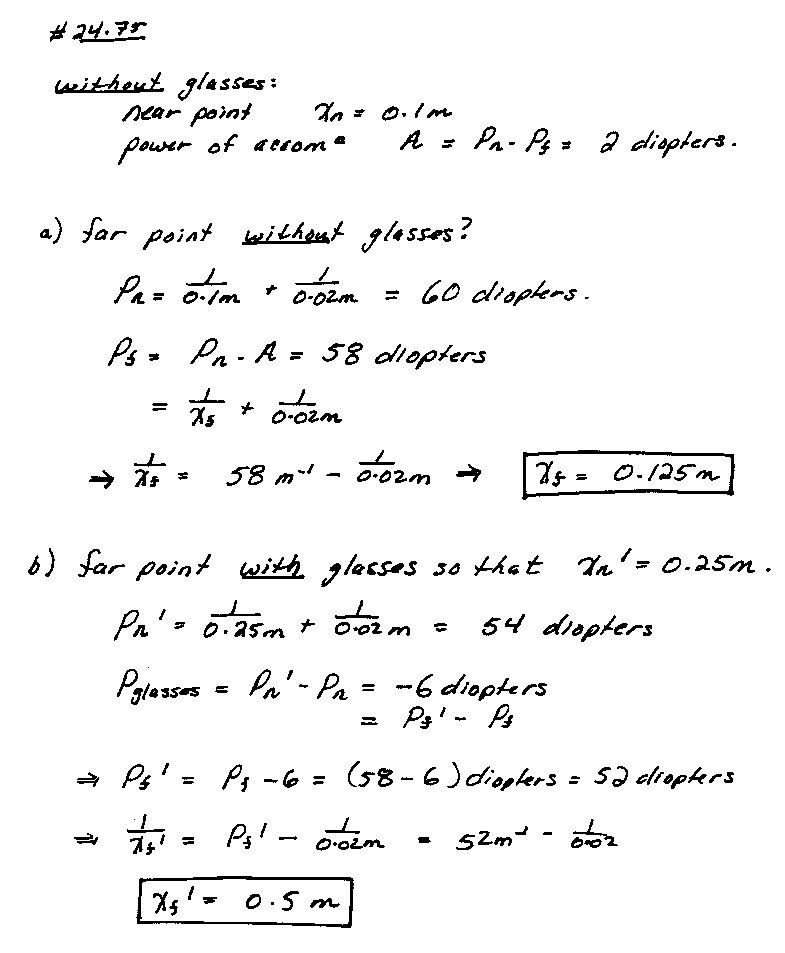 #24.75
without glasses:
near point xn = 0.1m
power of accom⁼ A = Pn - Pf = 2 diopters.
a) far point without glasses?
Pn = 1/0.1m + 1/0.02m = 60 diopters.
Pf = Pn - A = 58 diopters
= 1/xf + 1/0.02m
→ 1/xf = 58 m⁻¹ - 1/0.02m → xf = 0.125m
b) far point with glasses so that xn' = 0.25m.
Pn' = 1/0.25m + 1/0.02m = 54 diopters
Pglasses = Pn' - Pn = -6 diopters
= Pf' - Pf
⇒ Pf' = Pf - 6 = (58 - 6) diopters = 52 diopters
⇒ 1/xf' = Pf' - 1/0.02m = 52m⁻¹ - 1/0.02
xf' = 0.5 m